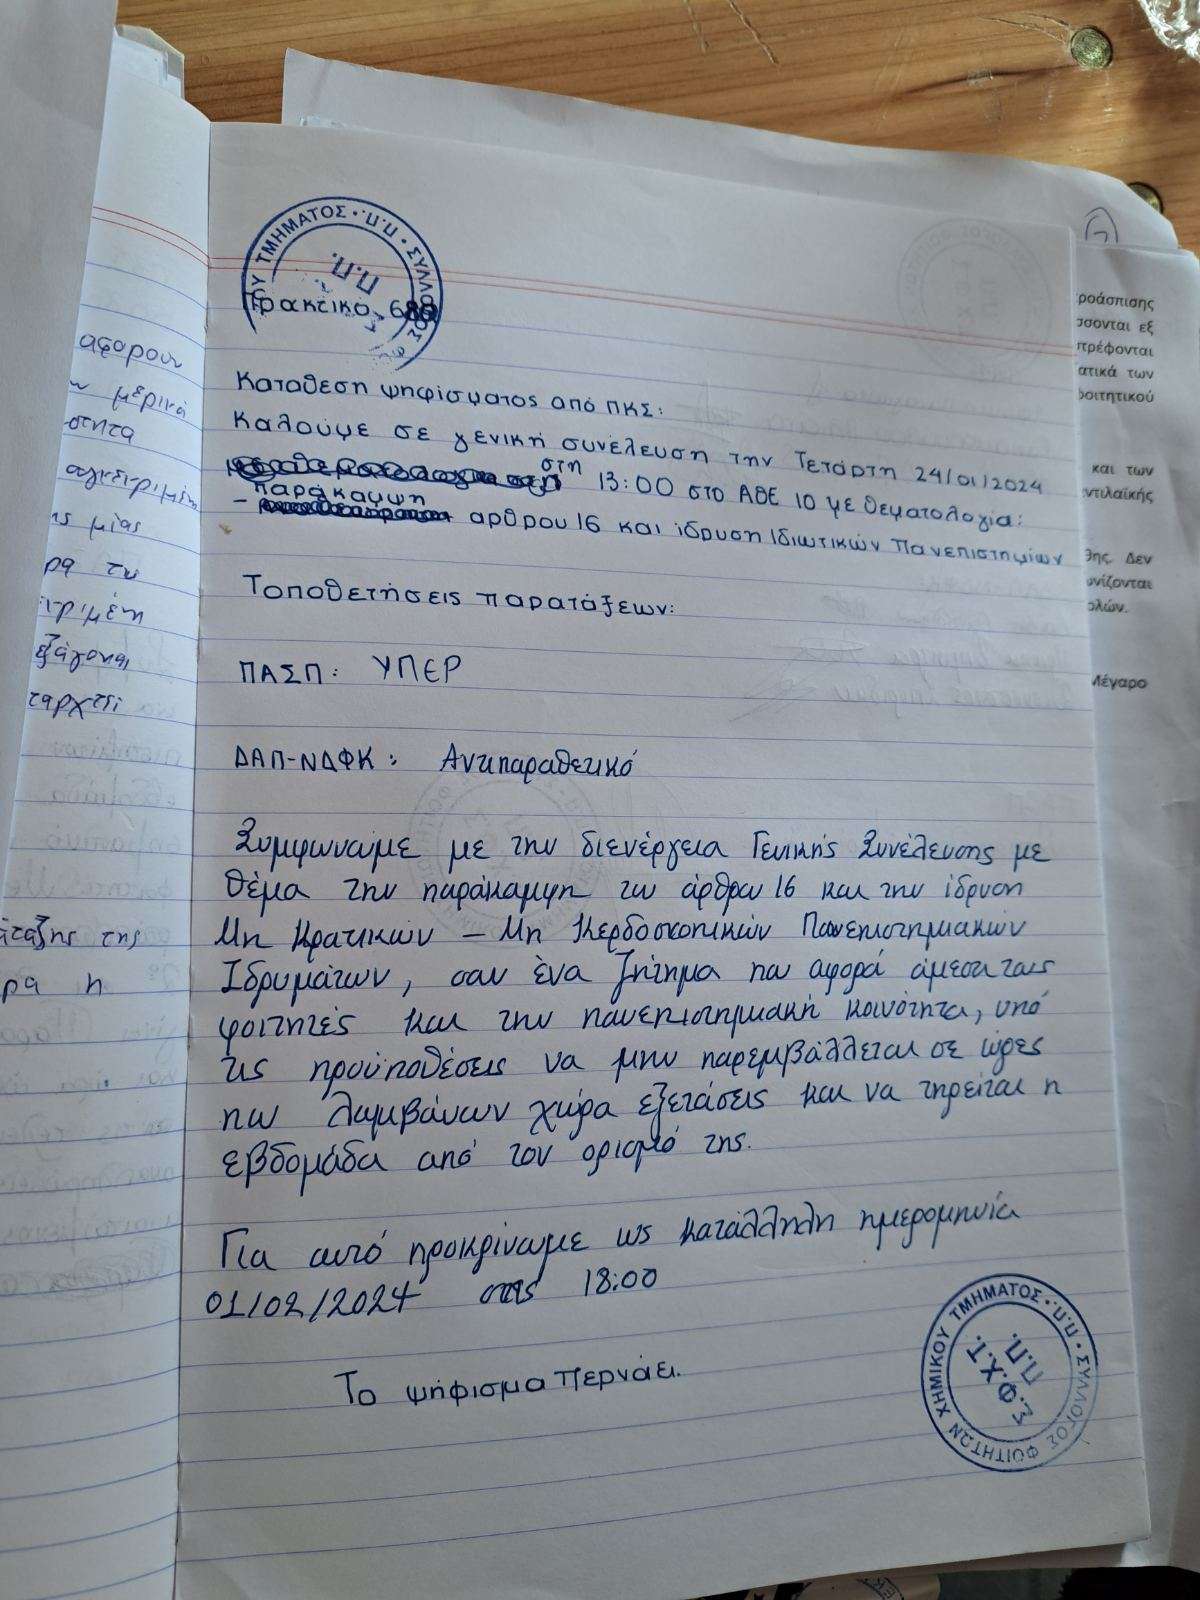 ΣΥΛΛΟΓΟΣ ΤΜΗΜΑΤΟΣ • Π.Π. •
Π.Π.
Πρακτικο
Καταθεση ψηφίσματος από ΠΚΣ:
Καλούμε σε γενική συνέλευση την Τετάρτη 24/01/2024
στη 13:00 στο ΑΘΕ 10 με θεματολογία:
παράκαμψη
- αρθρου 16 και ίδρυση Ιδιωτικών Πανεπιστημίων
Τοποθετήσεις παρατάξεων:
ΠΑΣΠ: ΥΠΕΡ
ΔΑΠ-ΝΔΦΚ: Αντιπαραθετικό
Συμφωνούμε με την διενέργεια Γενικής Συνέλευσης με
θέμα την παράκαμψη του άρθρου 16 και την ίδρυση
Μη Κρατικών - Μη Κερδοσκοπικών Πανεπιστημιακών
Ιδρυμάτων, σαν ένα ζήτημα που αφορά άμεσα τους
φοιτητές και την πανεπιστημιακή κοινότητα, υπό
τις προϋποθέσεις να μην παρεμβάλλεται σε ώρες
που λαμβάνουν χώρα εξετάσεις και να τηρείται η
εβδομάδα από τον ορισμό της.
Για αυτό προκρίνουμε ως κατάλληλη ημερομηνία
01/02/2024 στις 18:00
Το ψήφισμα περνάει.
ΣΥΛΛΟΓΟΣ ΦΟΙΤΗΤΩΝ ΧΗΜΙΚΟΥ ΤΜΗΜΑΤΟΣ • Π.Π. •
Σ.Φ.Χ.Τ.
Π.Π.
αφορουν
μερικά
μίας
εξάγονται
της
ρα η
και των
Δεν
Μέγαρο